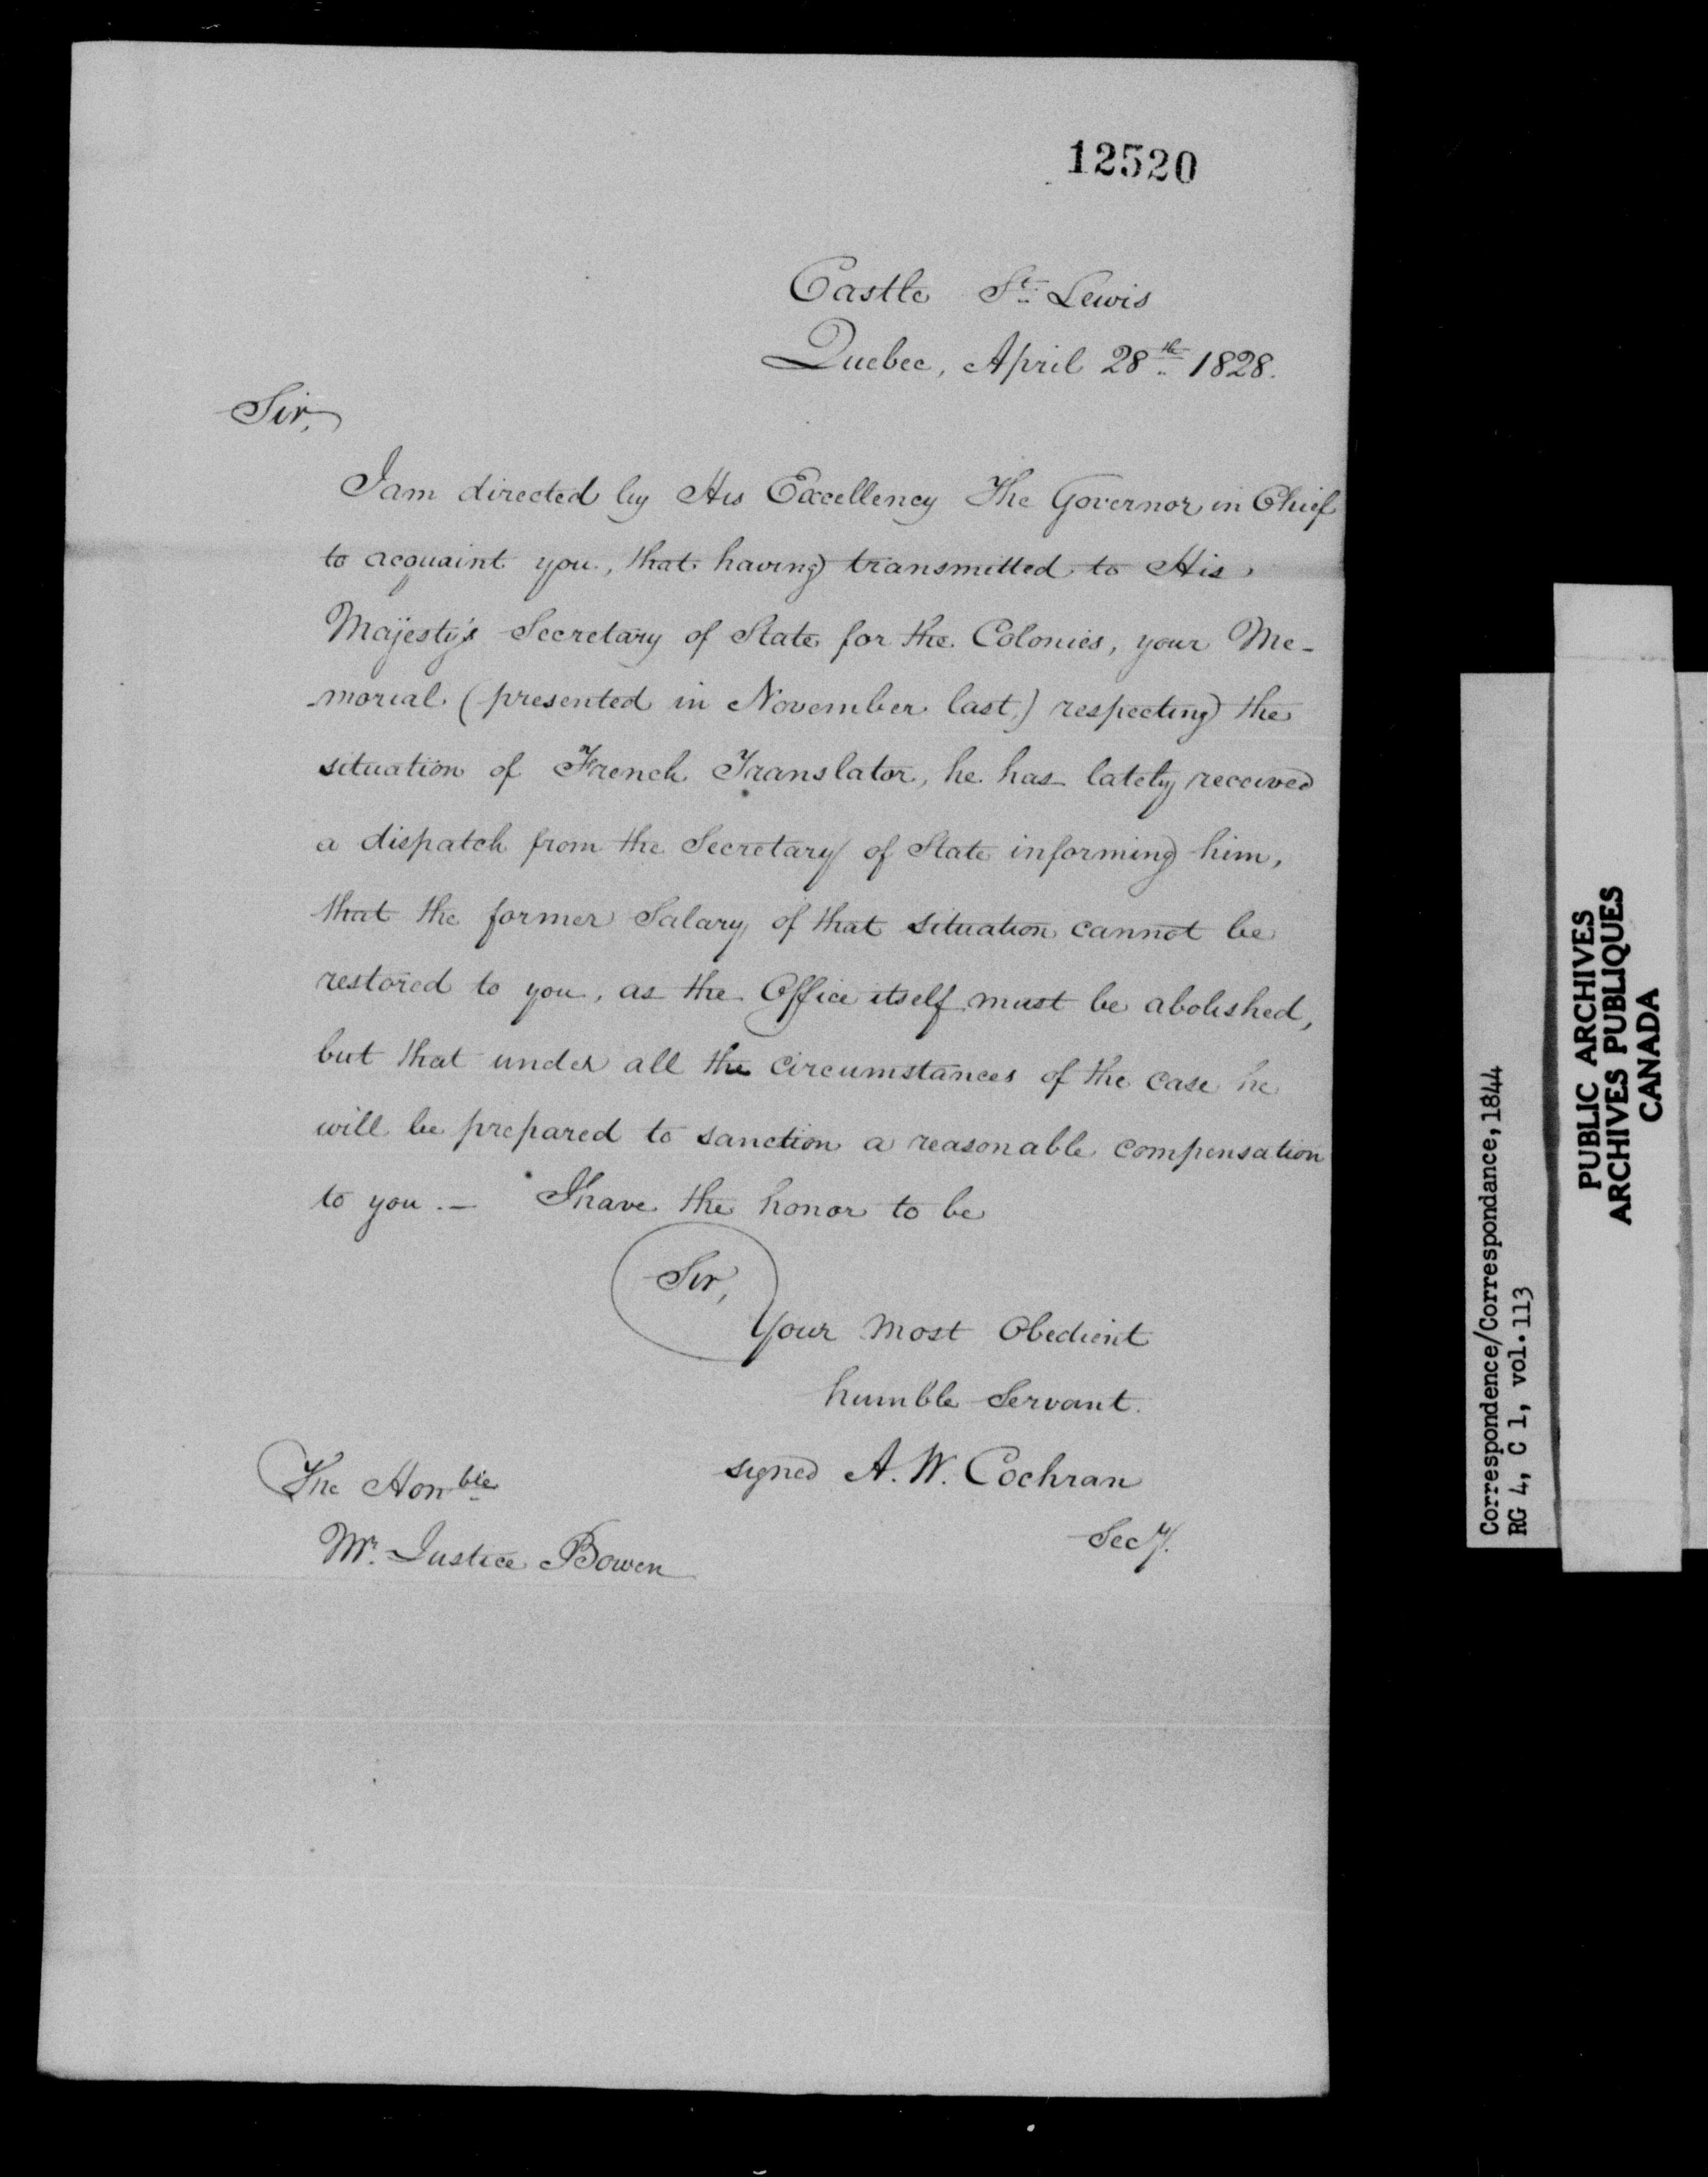 12520
Castle St. Lewis
Quebec, April 28th 1828.
Sir,
I am directed by His Excellency The Governor in Chief
to acquaint you, that having transmitted to His
Majesty's Secretary of State for the Colonies, your Me-
-morial (presented in November last,) respecting the
situation of French Translator, he has lately received
a dispatch from the Secretary of State informing him,
that the former Salary of that situation cannot be
restored to you, as the Office itself must be abolished,
but that under all the circumstances of the case he
will be prepared to sanction a reasonable compensation
to you. — I have the honor to be
Sir,
Your Most Obedient
humble Servant.
signed A. W. Cochran
Secy.
The Honble
Mr. Justice Bowen
Correspondence/Correspondance, 1844
RG 4, C 1, vol. 113
PUBLIC ARCHIVES
ARCHIVES PUBLIQUES
CANADA